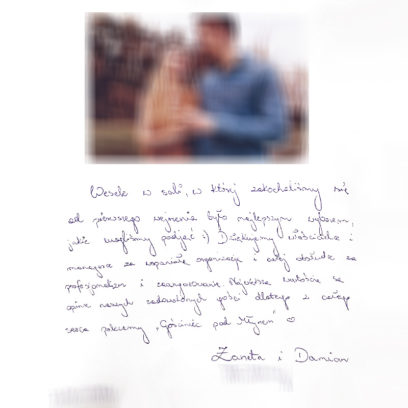 Wesele w sali, w której zakochaliśmy się
od pierwszego wejrzenia było najlepszym wyborem,
jaki mogliśmy podjąć :) Dziękujemy właścicielce i
managerce za wspaniałą organizację i całej obsłudze za
profesjonalizm i zaangażowanie. Największa wartością są
opinie naszych zadowolonych gości dlatego z całego
serca polecamy „Gościniec pod Młynem" ♡
Żaneta i Damian